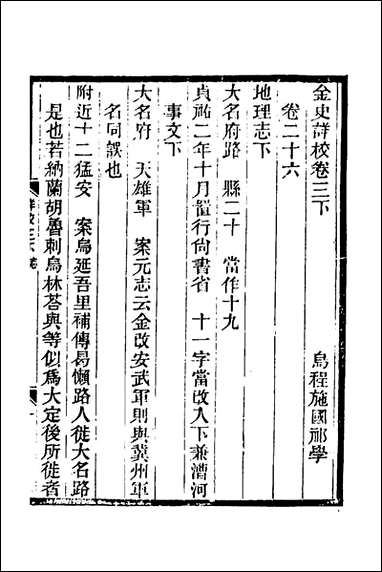 金史詳校卷三下
烏程施國祁學
卷二十六
地理志下
大名府路　縣二十　當作十九
貞祐二年十月置行尙書省　十一字當改入下兼漕河
事文下
大名府　天雄軍　案元志云金改安武軍則與冀州軍
名同誤也
附近十二猛安　案烏延吾里補傳曷懶路人徙大名路
是也若納蘭胡魯剌烏林荅與等似爲大定後所徙者